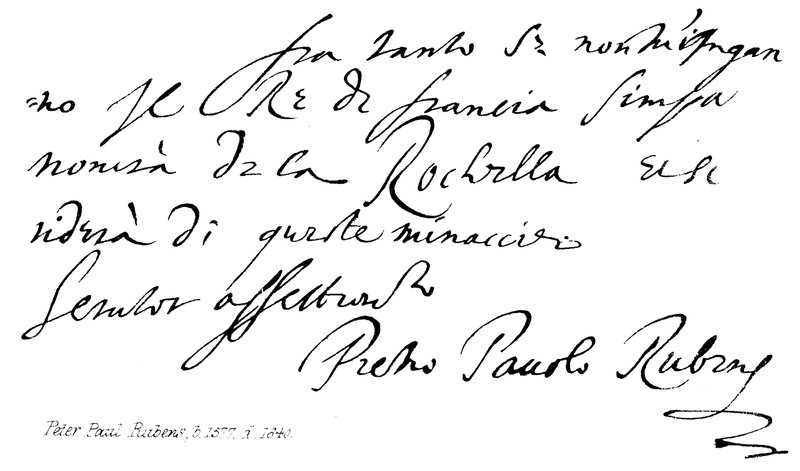 fra tanto Sr non m'ingan
=no Il Re di francia simpa
tronirà de la Rochella e si
riderà di queste minaccie.
Servitor affettionato
Pietro Pauolo Rubens
Peter Paul Rubens, b. 1577. d. 1640.